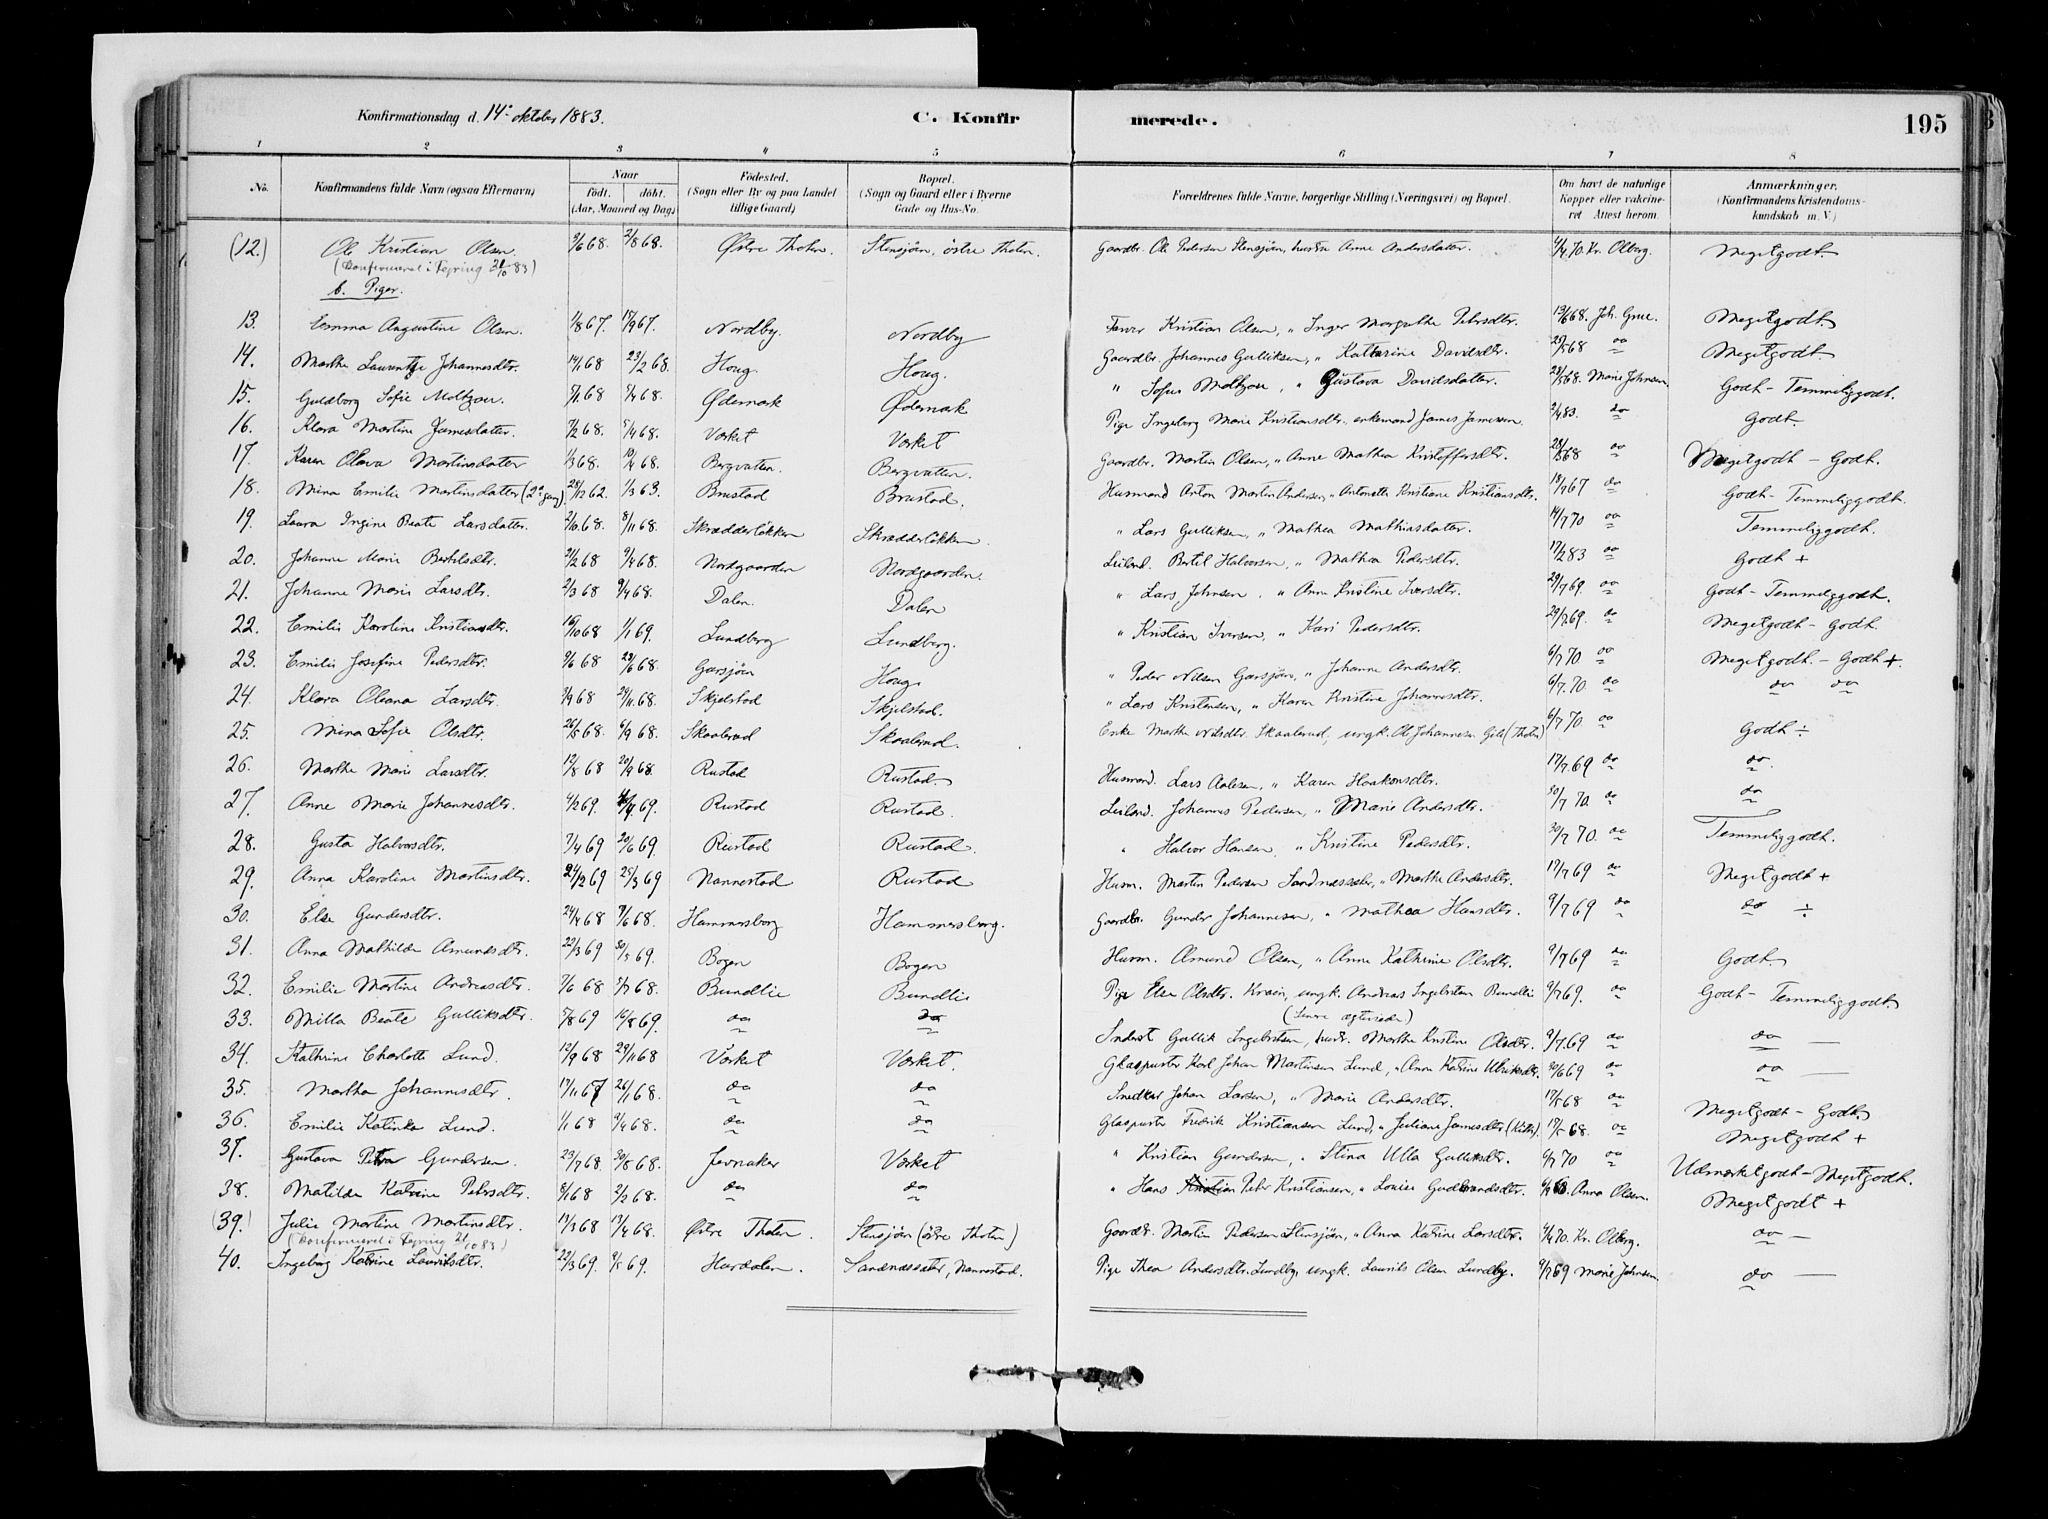 Konfirmationsdag d. 14. oktober 1883. C. Konfirmerede. 195
1 2 3 4 5 6 7 8
No. Konfirmandens fulde Navn (ogsaa Efternavn) Naar født. døbt. (Aar, Maaned og Dag) Fødested. (Sogn eller By og paa Landet tillige Gaard) Bopæl. (Sogn og Gaard eller i Byerne Gade og Hus-No. Forældrenes fulde Navne, borgerlige Stilling (Næringsvei) og Bopæl. Om havt de naturlige Kopper eller vakcineret Attest herom. Anmærkninger. (Konfirmandens Kristendomskundskab m. V.)
(12.) Ole Kristian Olsen. 9/6 68. 2/8 68. Østre Thoten. Stensjøen, østre Thoten. Gaardbr. Ole Pedersen Stensjøen, hustru Anne Andersdatter. 4/4 70. Kr. Olberg. Megetgodt.
(Konfirmeret i Fejring 21/10 83)
b. Piger.
13. Emma Augustine Olsen. 1/8 67. 15/9 67. Nordby. Nordby Farver Kristian Olsen, " Inger Margrethe Petersdtr. 19/6 68. Joh. Grue. Megetgodt.
14. Marthe Laurentze Johannesdtr. 14/1 68 23/2 68. Houg. Houg. Gaardbr. Johannes Gulliksen, " Katharine Davidsdtr. 25/5 68 do Megetgodt
15. Guldborg Sofie Moltzau. 5/1 68 5/4 68. Ødemark Ødemark " Sofus Moltzau, " Gustava Davidsdatter. 28/5 68. Marie Johnsen Godt - Temmeliggodt.
16. Klara Martine Jamesdatter. 7/2 68. 5/4 68. Værket Værket Pige Ingeborg Marie Kristiansdtr. enkemand James Jamessen. 2/4 83. do Godt.
17. Karen Olava Martinsdatter 1/3 68. 10/4 68. Bergvatten. Bergvatten. Gaardbr. Martin Olsen, " Anne Mathea Kristoffersdtr. 28/5 68 do Megetgodt - Godt.
18. Mina Emilie Martinsdatter (2den gang) 28/12 62. 1/3 63. Brustad Brustad. Husmand Anton Martin Andersen, " Antonette Kristiane Kristiansdtr. 18/7 67 do Godt - Temmeliggodt.
19. Laura Ingine Beate Larsdatter. 2/10 68. 8/11 68. Skrædderløkken Skrædderløkken. " Lars Gulliksen, " Mathea Mathiasdatter. 14/7 70 do Temmeliggodt.
20. Johanne Marie Bertelsdtr. 21/2 68 9/4 68. Nordgaarden Nordgaarden. Leilend. Bertel Halvorsen, " Mathea Pedersdtr. 17/2 83 do Godt +
21. Johanne Marie Larsdtr. 2/3 68 9/4 68. Dalen. Dalen " Lars Johnsen, " Anne Kristine Iversdtr. 29/7 69. do Godt - Temmeliggodt.
22. Emilie Karoline Kristiansdtr. 16/10 68 1/1 69. Lundberg Lundberg. " Kristian Iversen, " Kari Pedersdtr. 29/7 69. do Megetgodt - Godt.
23. Emilie Josefine Pedersdtr. 9/6 68 29/6 68. Garsjøen Houg. " Peder Nilsen Garsjøen, " Johanne Andersdtr. 6/7 70 do Megetgodt. - Godt +.
24. Klara Oleana Larsdtr. 3/9 68 29/11 68. Skjelstad Skjelstad. " Lars Kristensen, " Karen Kristine Johannesdtr. 6/7 70. do do do
25. Mina Sofie Olsdtr. 26/5 68. 6/9 68. Skaalerud Skaalerud. Enke Marthe Nilsdtr. Skaalerud, ungk. Ole Johannesen (Thoten) 6/7 70 do Godt ÷
26. Marthe Marie Larsdtr. 12/8 68 20/9 68. Rustad Rustad. Husmand. Lars Aslesen, " Karen Haakonsdtr. 17/7 69 do do.
27. Anne Marie Johannesdtr. 4/2 69. 69. Rustad Rustad. Leilend. Johannes Pedersen, " Marie Andersdtr. 30/7 70. do do
28. Gusta Halvorsdtr. 7/4 69 20/6 69. Rustad Rustad. " Halvor Hansen, " Kristine Pedersdtr. 30/7 70. do Temmeliggodt.
29. Anna Karoline Martinsdtr. 24/12 69 25/3 69 Nannestad Rustad Husm. Martin Pedersen Sandnæsseter, " Marthe Andersdtr. 17/7 69 do Megetgodt +
30. Else Gundersdtr. 24/4 68 7/6 68. Hammersborg Hammersborg. Gaardbr. Gunder Johannesen, " Mathea Hansdtr. 9/7 69 do do ÷
31. Anna Mathilde Amundsdtr. 22/3 69 30/5 69. Bogen Bogen Husm. Amund Olsen, " Anne Kathrine Olsdtr. 9/7 69 do Godt.
32. Emilie Martine Andreasdtr. 7/6 68 5/7 68. Bundlie Bundlie Pige Else Olsdtr. Krain, ungk. Andreas Ingebretsen Bundlie 9/7 69. do Godt - Temmeliggodt.
(senere ægteviede)
33. Milla Beate Gulliksdtr. 5/8 69 16/8 69. do do Inderst Gullik Ingebretsen, hustr. Marthe Kristine Olsdtr. 9/7 69 do do —
34. Kathrine Charlotte Lund. 12/9 68 29/11 68 Værket Værket. Glaspuster Karl Johan Martinsen Lund, " Anna Katrine Ulriksdtr. 30/6 69 do do —
35. Martha Johannesdtr. 17/11 67 26/1 68. do do Snedker Johan Larsen, " Marie Andersdtr. 17/5 68 do Megetgodt - Godt.
36. Emilie Katinka Lund. 1/1 68 9/4 68. do do Glaspuster Fredrik Kristiansen Lund, " Juliane Jamesdtr. 17/5 68. do Megetgodt +
37. Gustava Petra Gundersen. 23/7 68. 30/8 68. Jevnaker Værket " Kristian Gundersen, " Stina Ulla Gulliksdtr. 6/7 70 do Udmærketgodt - Megetgodt.
38. Matilde Katrine Petersdtr. 8/1 68 2/2 68. do do " Hans Kristian Peter Kristiansen, " Louise Gudbrandsdtr. 9/9 68. Anna Olsen. Megetgodt +
(39.) Julie Martine Martinsdtr. 13/3 68 13/4 68. Østre Thoten. Stensjøen (østre Thoten) Gaardbr. Martin Pedersen Stensjøen, " Anna Katrine Larsdtr. 4/4 70. Kr. Olberg. do —
(Konfirmeret i Fejring 21/10 83)
40. Ingeborg Katrine Lauritsdtr. 22/3 69. 9/5 69. Hurdalen. Sandnæsseter, Nannestad. Pige Thea Andersdtr. Lundby, ungk. Laurits Olsen Lundby. 9/7 69 Marie Johnsen. do —